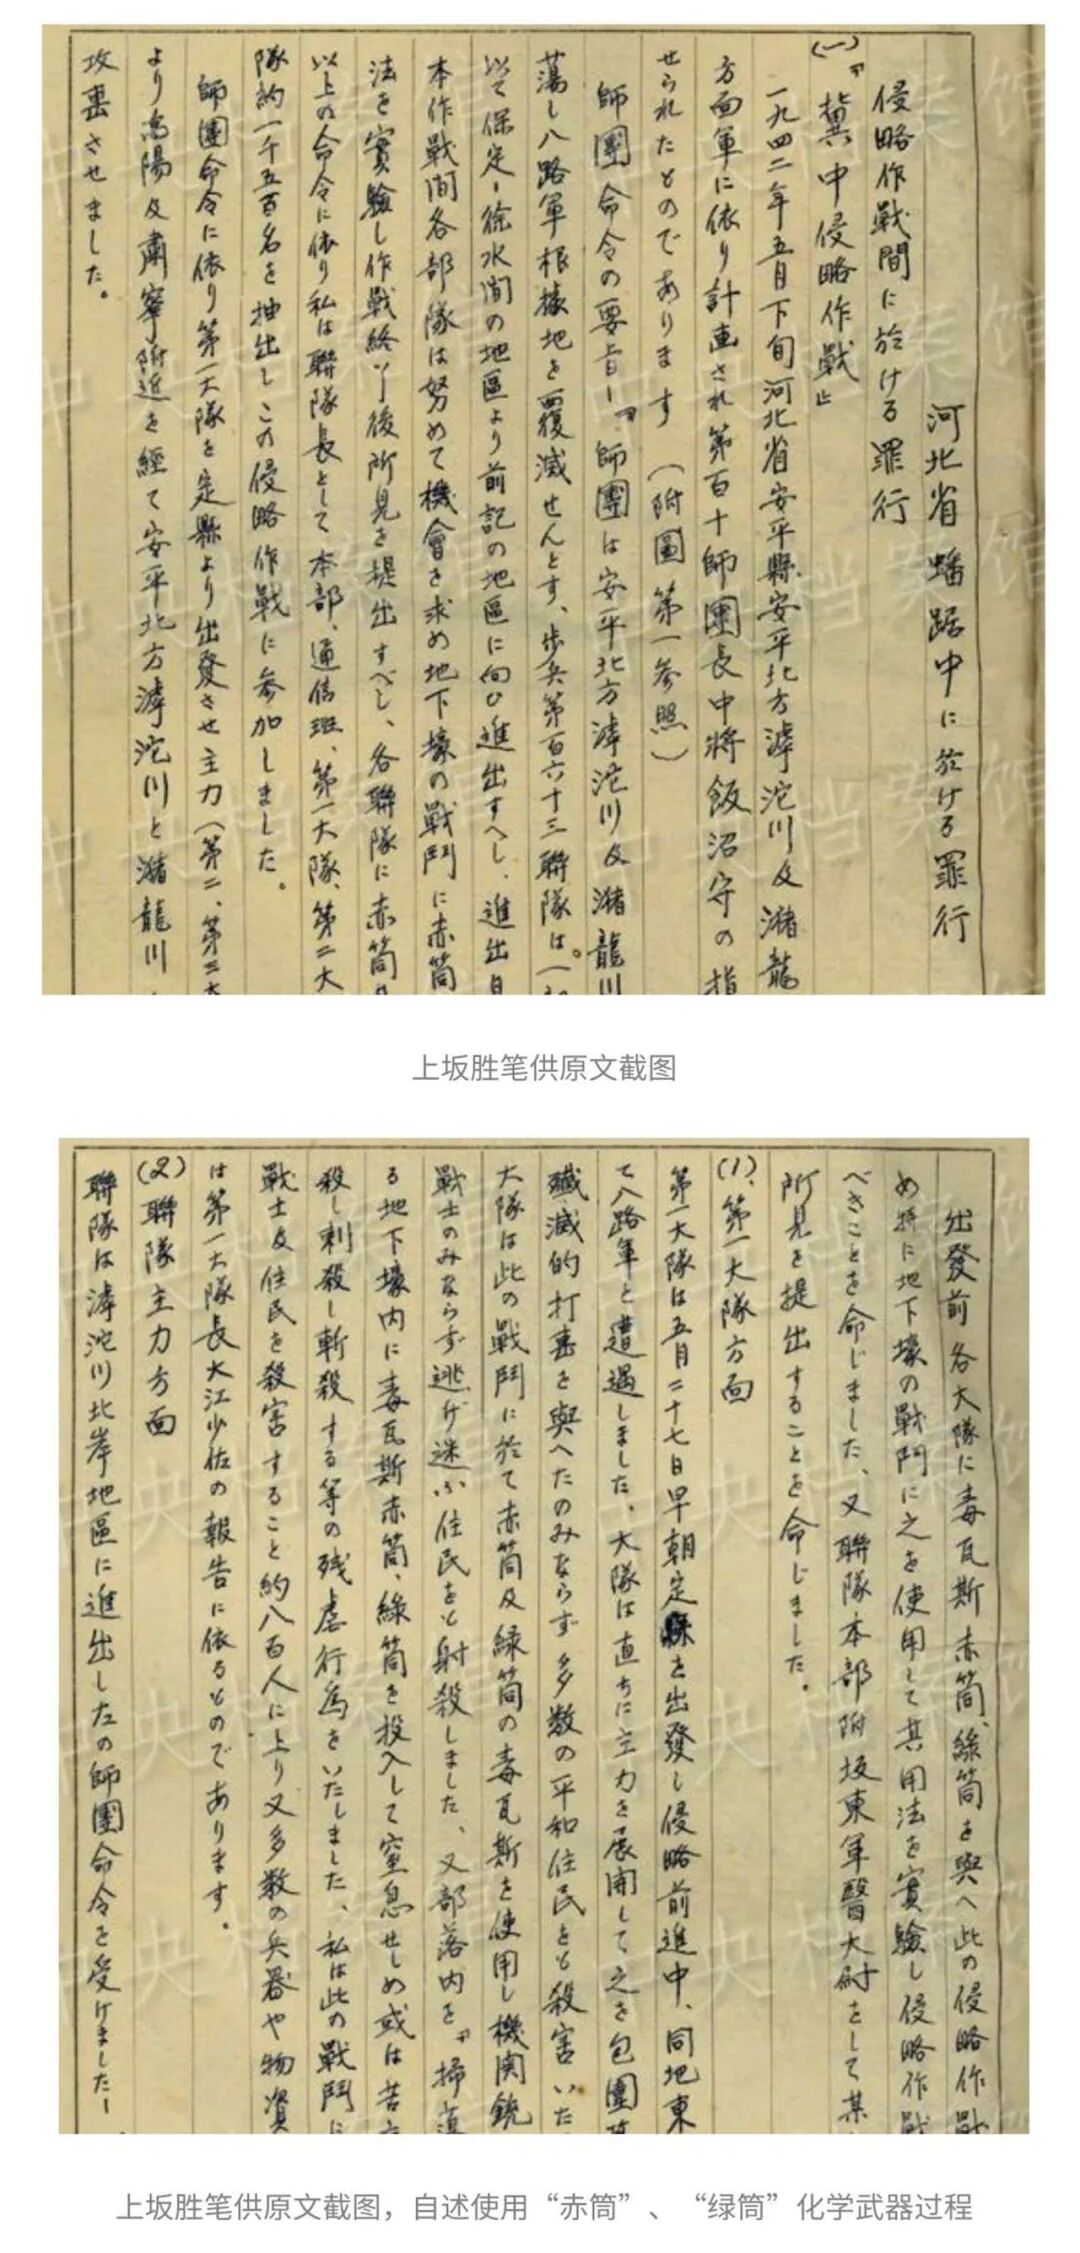 河北省蟠踞中に於ける罪行
侵略作戦間に於ける罪行
(一)『冀中侵略作戦』
一九四二年五月下旬河北省安平縣安平北方滹沱川及瀦龍
方面軍に依り計画され第百十師團長中将飯沼守の指
せられたものであります(附圖第一参照)
師團命令の要旨ー『師團は安平北方滹沱川及瀦龍川
蕩し八路軍根據地を覆滅せんとす、歩兵第百六十三聯隊は。
以て保定ー徐水間の地區より前記の地區に向ひ進出すべし、進出日
本作戦間各部隊は努めて機會を求め地下壕の戦鬥に赤筒
法を實驗し作戦終了後所見を提出すべし、各聯隊に赤筒
以上の命令に依り私は聯隊長として本部、通信班、第一大隊、第二大
隊約一千五百名を抽出しこの侵略作戦に参加しました。
師團命令に依り第一大隊を定縣より出發させ主力(第二、第三大
より高陽及肅寧附近を経て安平北方滹沱川と瀦龍川
攻裏させました。
上坂胜笔供原文截图
出發前各大隊に毒瓦斯赤筒、緑筒を與へ此の侵略作戦
め特に地下壕の戦鬥に之を使用して其用法を實驗し侵略作戦
べきことを命じました、又聯隊本部附坂東軍醫大尉をして某
所見を提出することを命じました。
(1)、第一大隊方面
第一大隊は五月二十七日早朝定縣を出發し侵略前進中、同地東
て八路軍と遭遇しました。大隊は直ちに主力を展開して之を包圍
殲滅的打撃を與へたのみならず多数の平和住民をも殺害いた
大隊は此の戦鬥に於て赤筒及緑筒の毒瓦斯を使用し機関銃
戦士のみならず逃げ迷ふ住民をも射殺しました、又部落内を『掃蕩
る地下壕内に毒瓦斯赤筒、緑筒を投入して窒息せしめ或は苦
殺し刺殺し斬殺する等の残虐行為をいたしました、私は此の戦鬥に
戦士及住民を殺害すること約八百人に上り又多数の兵器や物資
は第一大隊長大江少佐の報告に依るものであります。
(2)聯隊主力方面
聯隊は滹沱川北岸地區に進出した左の師團命令を受けましたー
上坂胜笔供原文截图，自述使用“赤筒”、“绿筒”化学武器过程